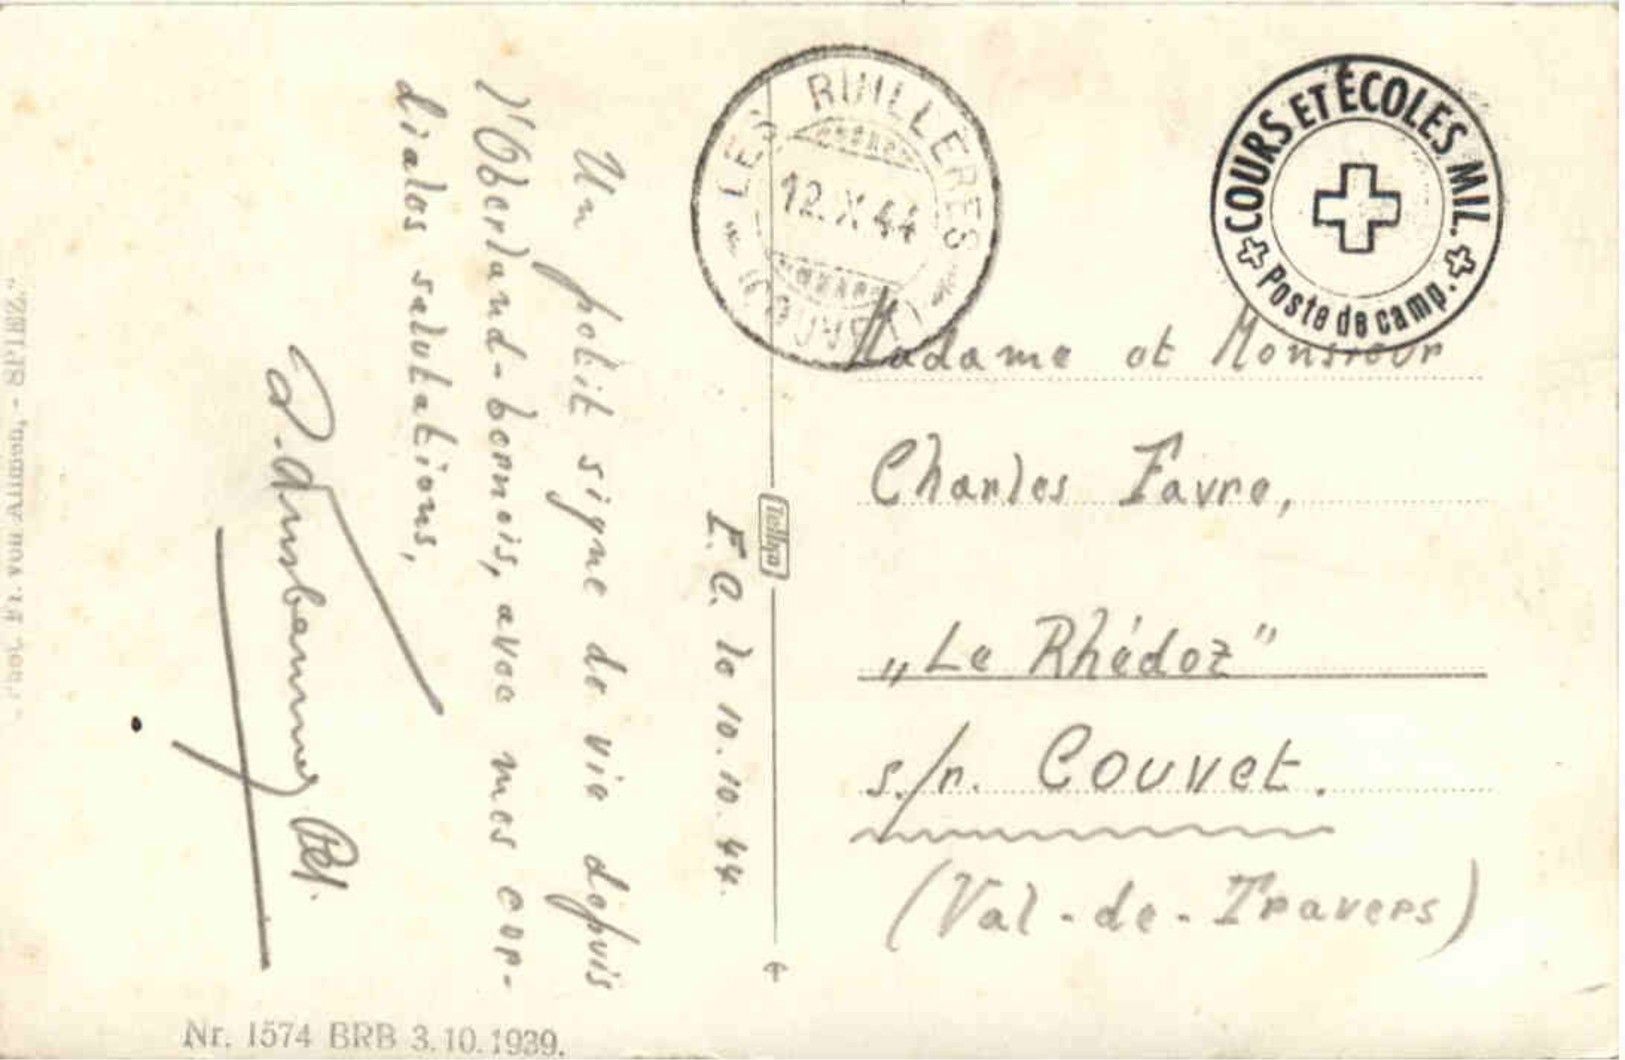 E.C. le 10.10.44.
Un petit signe de vie depuis
l'Oberland-bernois, avec mes cor-
diales salutations,
Pst.
LES RUILLERES
12.X.44
(COUVET)
COURS ET ÉCOLES MIL.
Poste de camp.
Madame et Monsieur
Charles Favre,
„Le Rhédoz"
s./r. Couvet.
(Val-de-Travers)
Tellko
Nr. 1574 BRB 3.10.1939.
Phot. Fr. von Ammon, - SPIEZ.